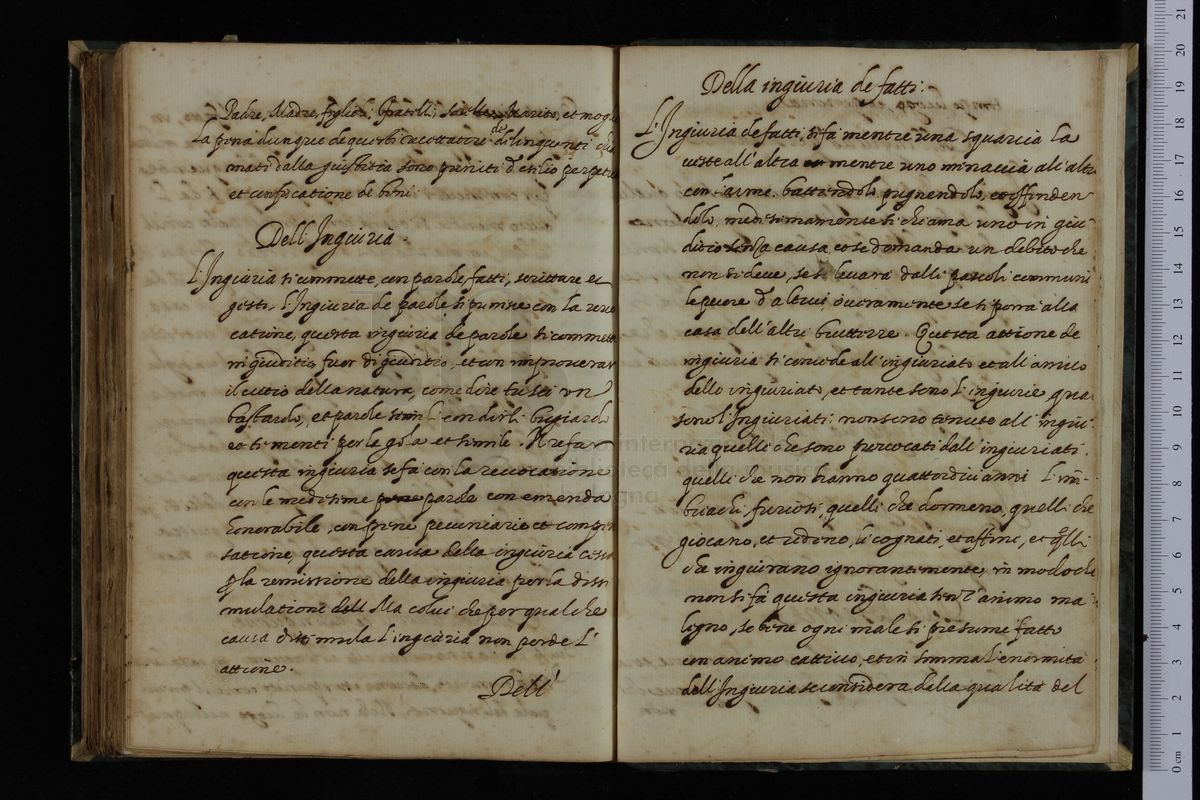 Padre, Madre, figlioli, fratelli, Marito, et mogl
La pena dunque de questi recettatori de dilinquenti
mati dalla giustitia sono puniti d'esilio perpetu
et confiscatione de beni.
Dell'Ingiuria.
L'Ingiuria si commette, con parole, fatti, scritture et
gesti, l'Ingiuria de parole si punisce con la revo
catione, questa ingiuria de parole si commett
in giuditio, fuor di giuditio, et con improverar
il vitio della natura, come dire tu sei un
bastardo, et parole simili con dirli bugiardo
et ti menti per la gola et simile. Il refar
questa ingiuria se fa con la revocatione
con le medesime parole con emenda
honorabile, con pene pecuniarie et compen
satione, questa causa della ingiuria cessa
p la remissione della ingiuria per la dissi
mulatione dell Ma colui che per qualche
causa dissimula l'ingiuria non perde l'
attione.
Dell'
Della ingiuria de fatti:
L'Ingiuria de fatti, si fa mentre una squarcia la
veste all'altra mentre uno minaccia all'altr
con l'arme. battendolo, pugnendolo, et offenden
dolo, medesimamente si chiama uno in giu
ditio senza causa, et se domanda un debito che
non si deve, se si levarà dalli pascoli communi
le pecore d'altrui, overamente se si porrà alla
casa dell'altri bruttezze. Questa attione de
ingiuria si concede all'ingiuriato et all'amico
dello ingiuriato, et tante sono l'ingiurie qua
sono l'Ingiuriati; non sono tenuto all'ingiu
ria quelli che sono provocati dall'ingiuriati.
quelli che non hanno quattordici anni l'im
briachi, furiosi, quelli che dormeno, quelli che
giocano, et rideno, li cognati, et affini, et qlli
che ingiuriano ignorantimente, in modo che
non si fa questa ingiuria senz'animo ma
ligno, se bene ogni male si presume fatto
con animo cattivo, et in summa l'enormità
dell'Ingiuria se considera dalla qualità del